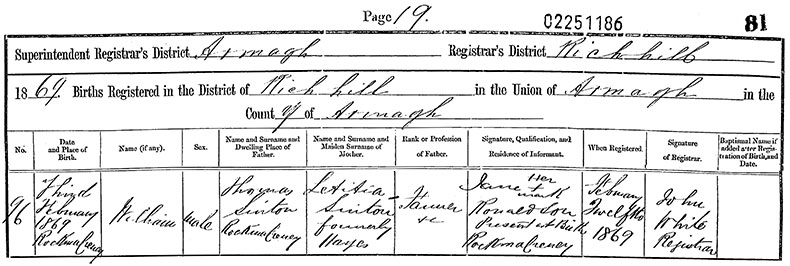 Page 19.
02251186
81
Superintendent Registrar's District Armagh Registrar's District Richhill
1869. Births Registered in the District of Richhill in the Union of Armagh in the
County of Armagh
No. Date and Place of Birth. Name (if any). Sex. Name and Surname and Dwelling Place of Father. Name and Surname and Maiden Surname of Mother. Rank or Profession of Father. Signature, Qualification, and Residence of Informant. When Registered. Signature of Registrar. Baptismal Name if added after Registration of Birth, and Date.
96 Third February 1869 Rockmacreney William Male Thomas Sinton Rockmacreney Letitia Sinton formerly Hayes Farmer &c Jane Her + mark Ronaldson Present at Birth Rockmacreney February Twelfth 1869 John White Registrar